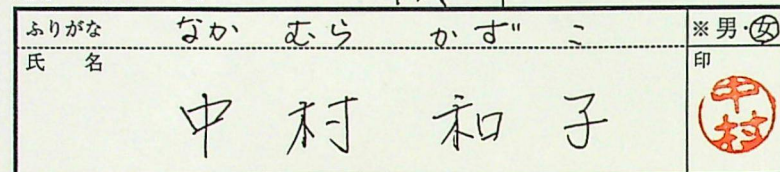 ふりがな なか むら かず こ ※男・女
氏 名 印
中 村 和 子 中村